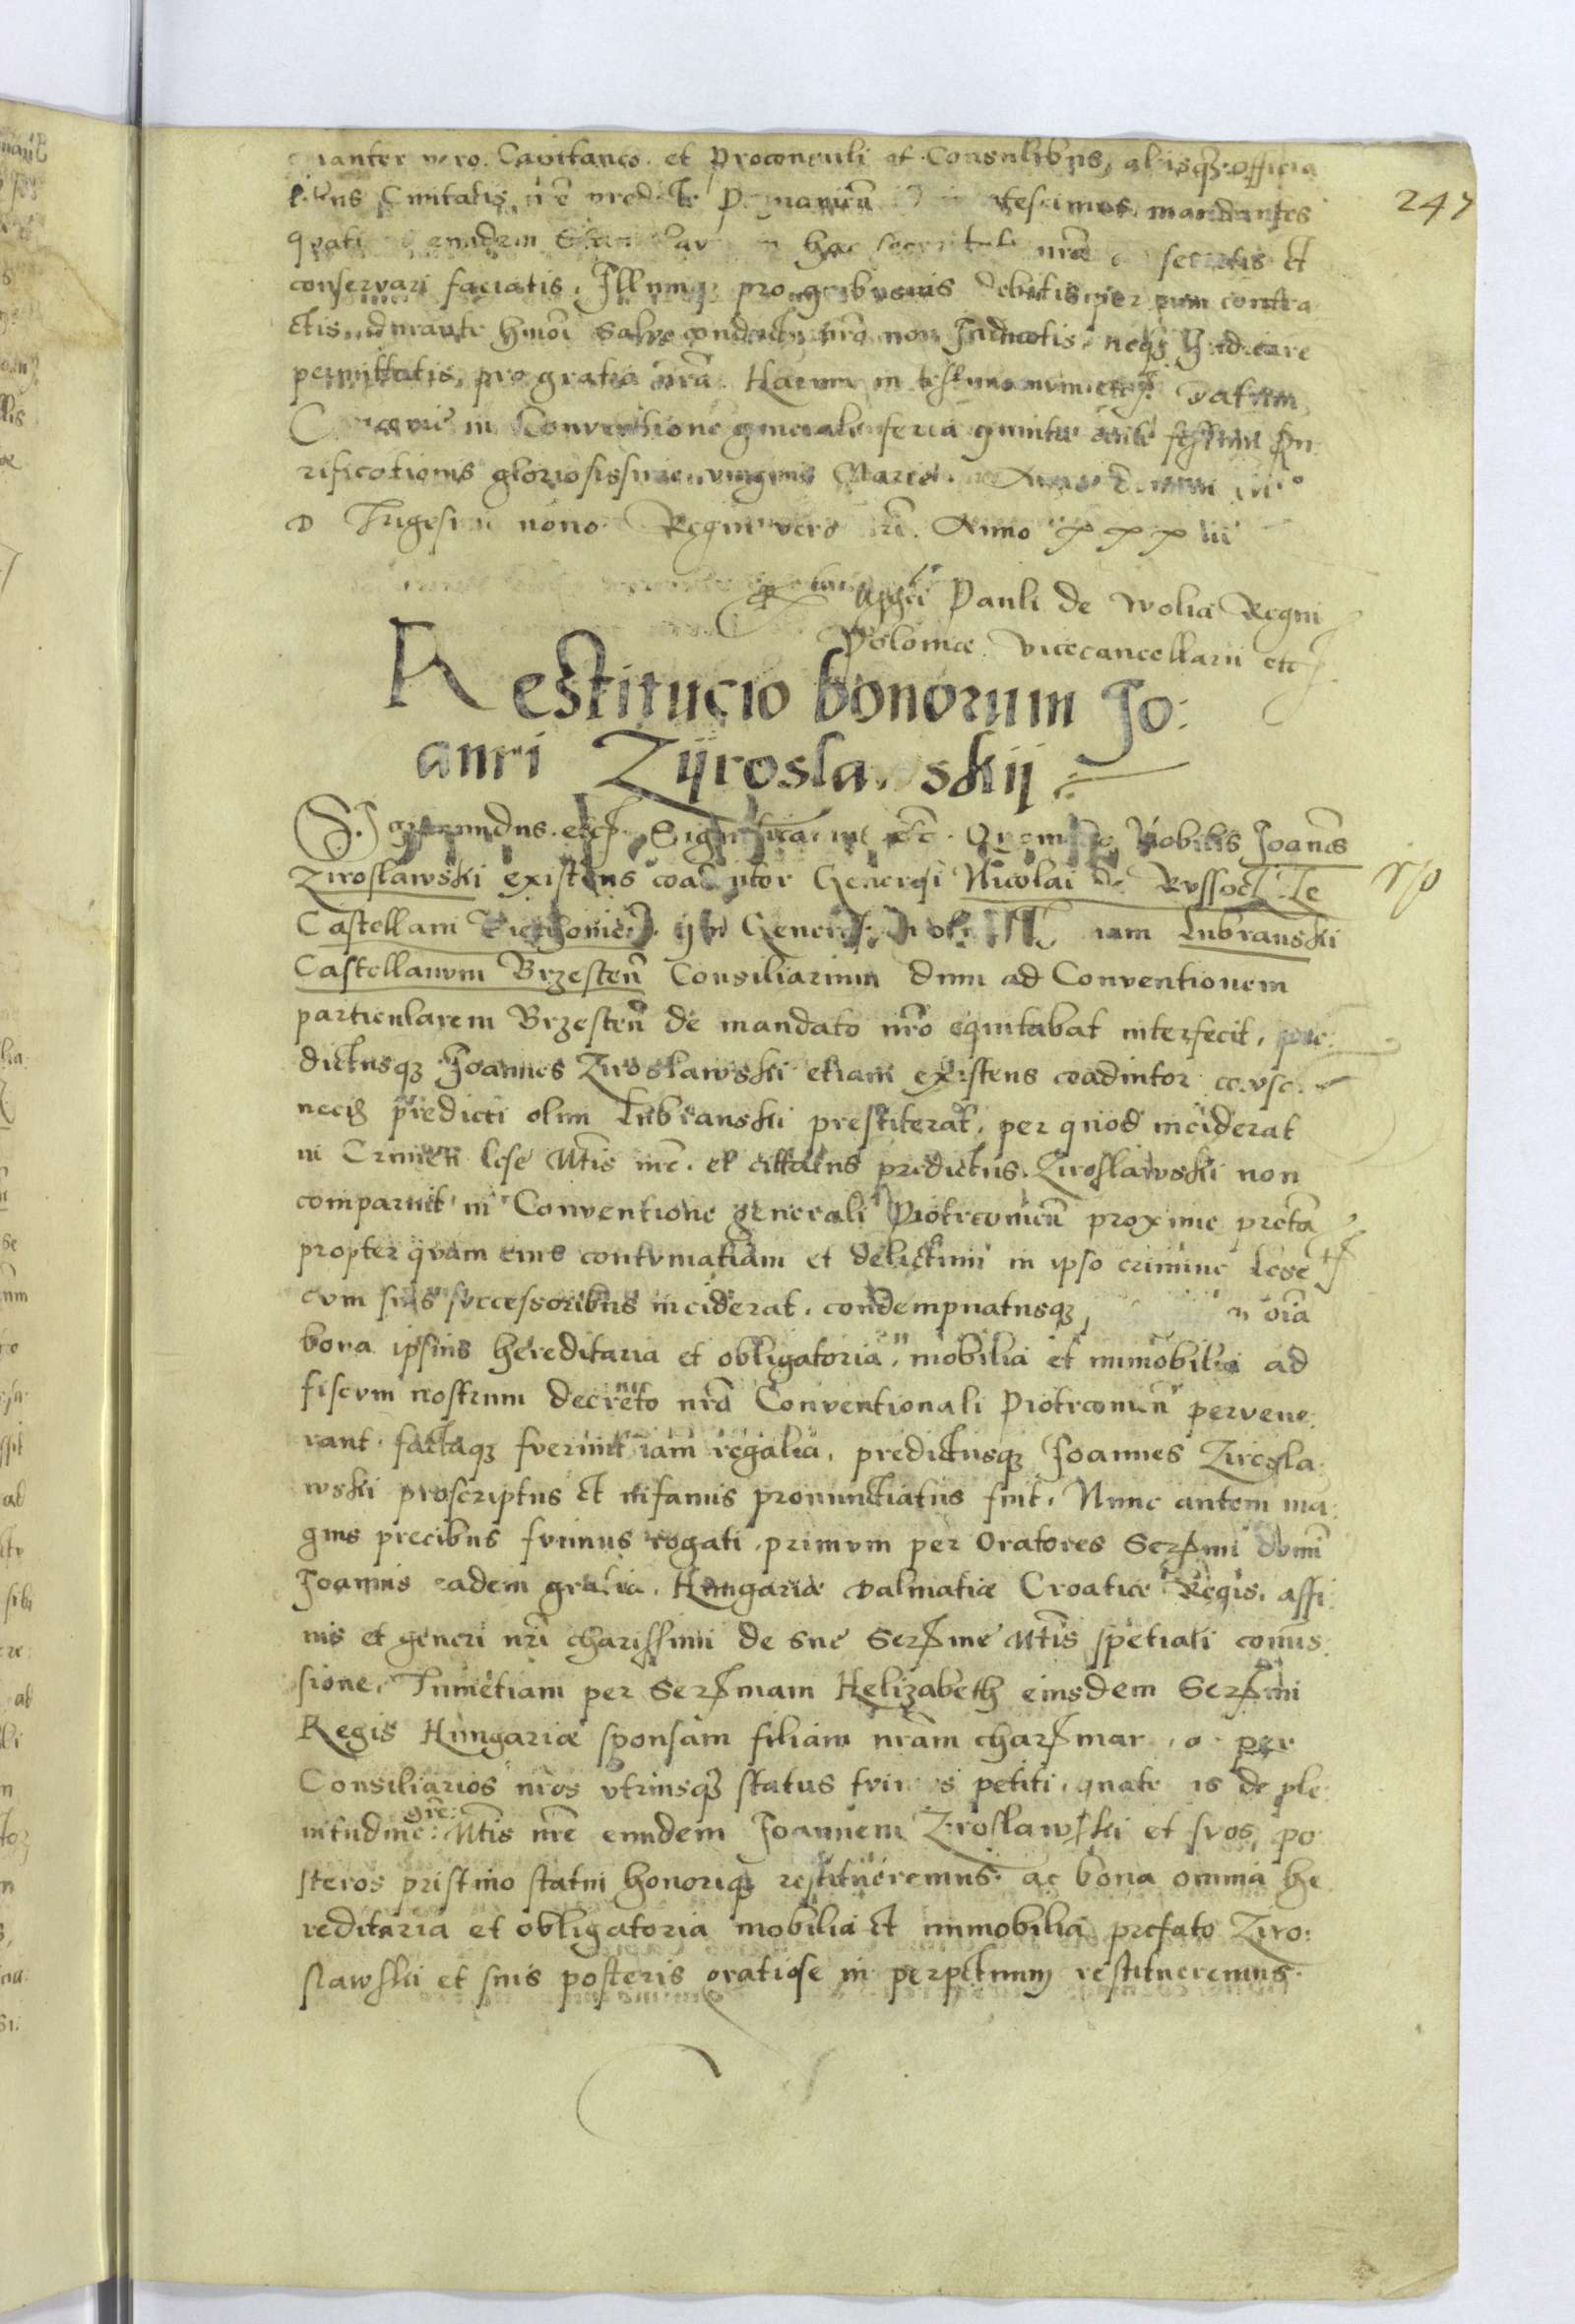 vero Capitaneo et Proconsuli et Consulibus, aliisqz officia
libus Civitatis nrē mandantes
247
hac securitate nrā et
conservari faciatis. Illumqz pro quibusvis debitis per eum contra
ctis durante hmōi Salvoconductu nrō non Iudicetis, neqz Iudicare
permittatis, pro gratia nrā. Harum in testimonium etc. Datum
Cracovie in Conventione generali feria quinta ante festum Pu
rificationis gloriosissime virginis Marie. Anno domini Mº
D Trigesimo nono Regni vero nrī Anno XXXiii
Pauli de Wolia Regni
Poloniæ Vicecancellarii etc
Restitucio bonorum Jo:
anni Zÿroslawskij
Sigismundus etc. Significamus etc. Quomodo Nobilis Joanēs
Ziroslawski existens coadiutor Generosi Nicolai de Russocice
Castellani Generosum olim Lubranski
Castellanum Brzestēn Consiliarium dum ad Conventionem
particularem Brzestēn de mandato nrō equitabat interfecit, pre
dictusqz Joannes Ziroslawski etiam existens coadiutor
necis predicti olim Lubranski prestiterat, per quod inciderat
in Crimen lese Mtīs nrē. et cittatus predictus Ziroslawski non
comparuit in Conventione generali Piotrcoviēn proxime pretā
propter quam eius contumatiam et delictum in ipso crimine lese
cum suis successoribus inciderat, condempnatusqz oīa
bona ipsius hereditaria et obligatoria, mobilia et immobilia ad
fiscum nostrum decreto nrō Conventionali Piotrcoviēn pervene
rant factaqz fuerunt iam regalia, predictusqz Joannes Zirosla
wski proscriptus et infamis pronunctiatus fuit. Nunc autem ma
gnis precibus fuimus rogati, primum per Oratores Serᵐⁱ domī
Joannis eadem gratia Hungariæ Dalmatiæ Croatiæ Regis, affi
nis et generi nrī charissimi de sue Serᵐᵉ Mtīs spetiali comis
sione, Tumetiam per Serᵐᵃᵐ Helizabeth eiusdem Serᵐⁱ
Regis Hungariæ sponsam filiam nrām charᵐᵃᵐ, per
Consiliarios nrōs utriusqz status fuimus petiti, quatenus de ple
nitudine grē: Mtīs nrē eundem Joannem Ziroslawski et suos po
steros pristino statui honoriqz restitueremus ac bona omnia he
reditaria et obligatoria mobilia et immobilia prefato Ziro:
slawski et suis posteris gratiose in perpetuum restitueremus